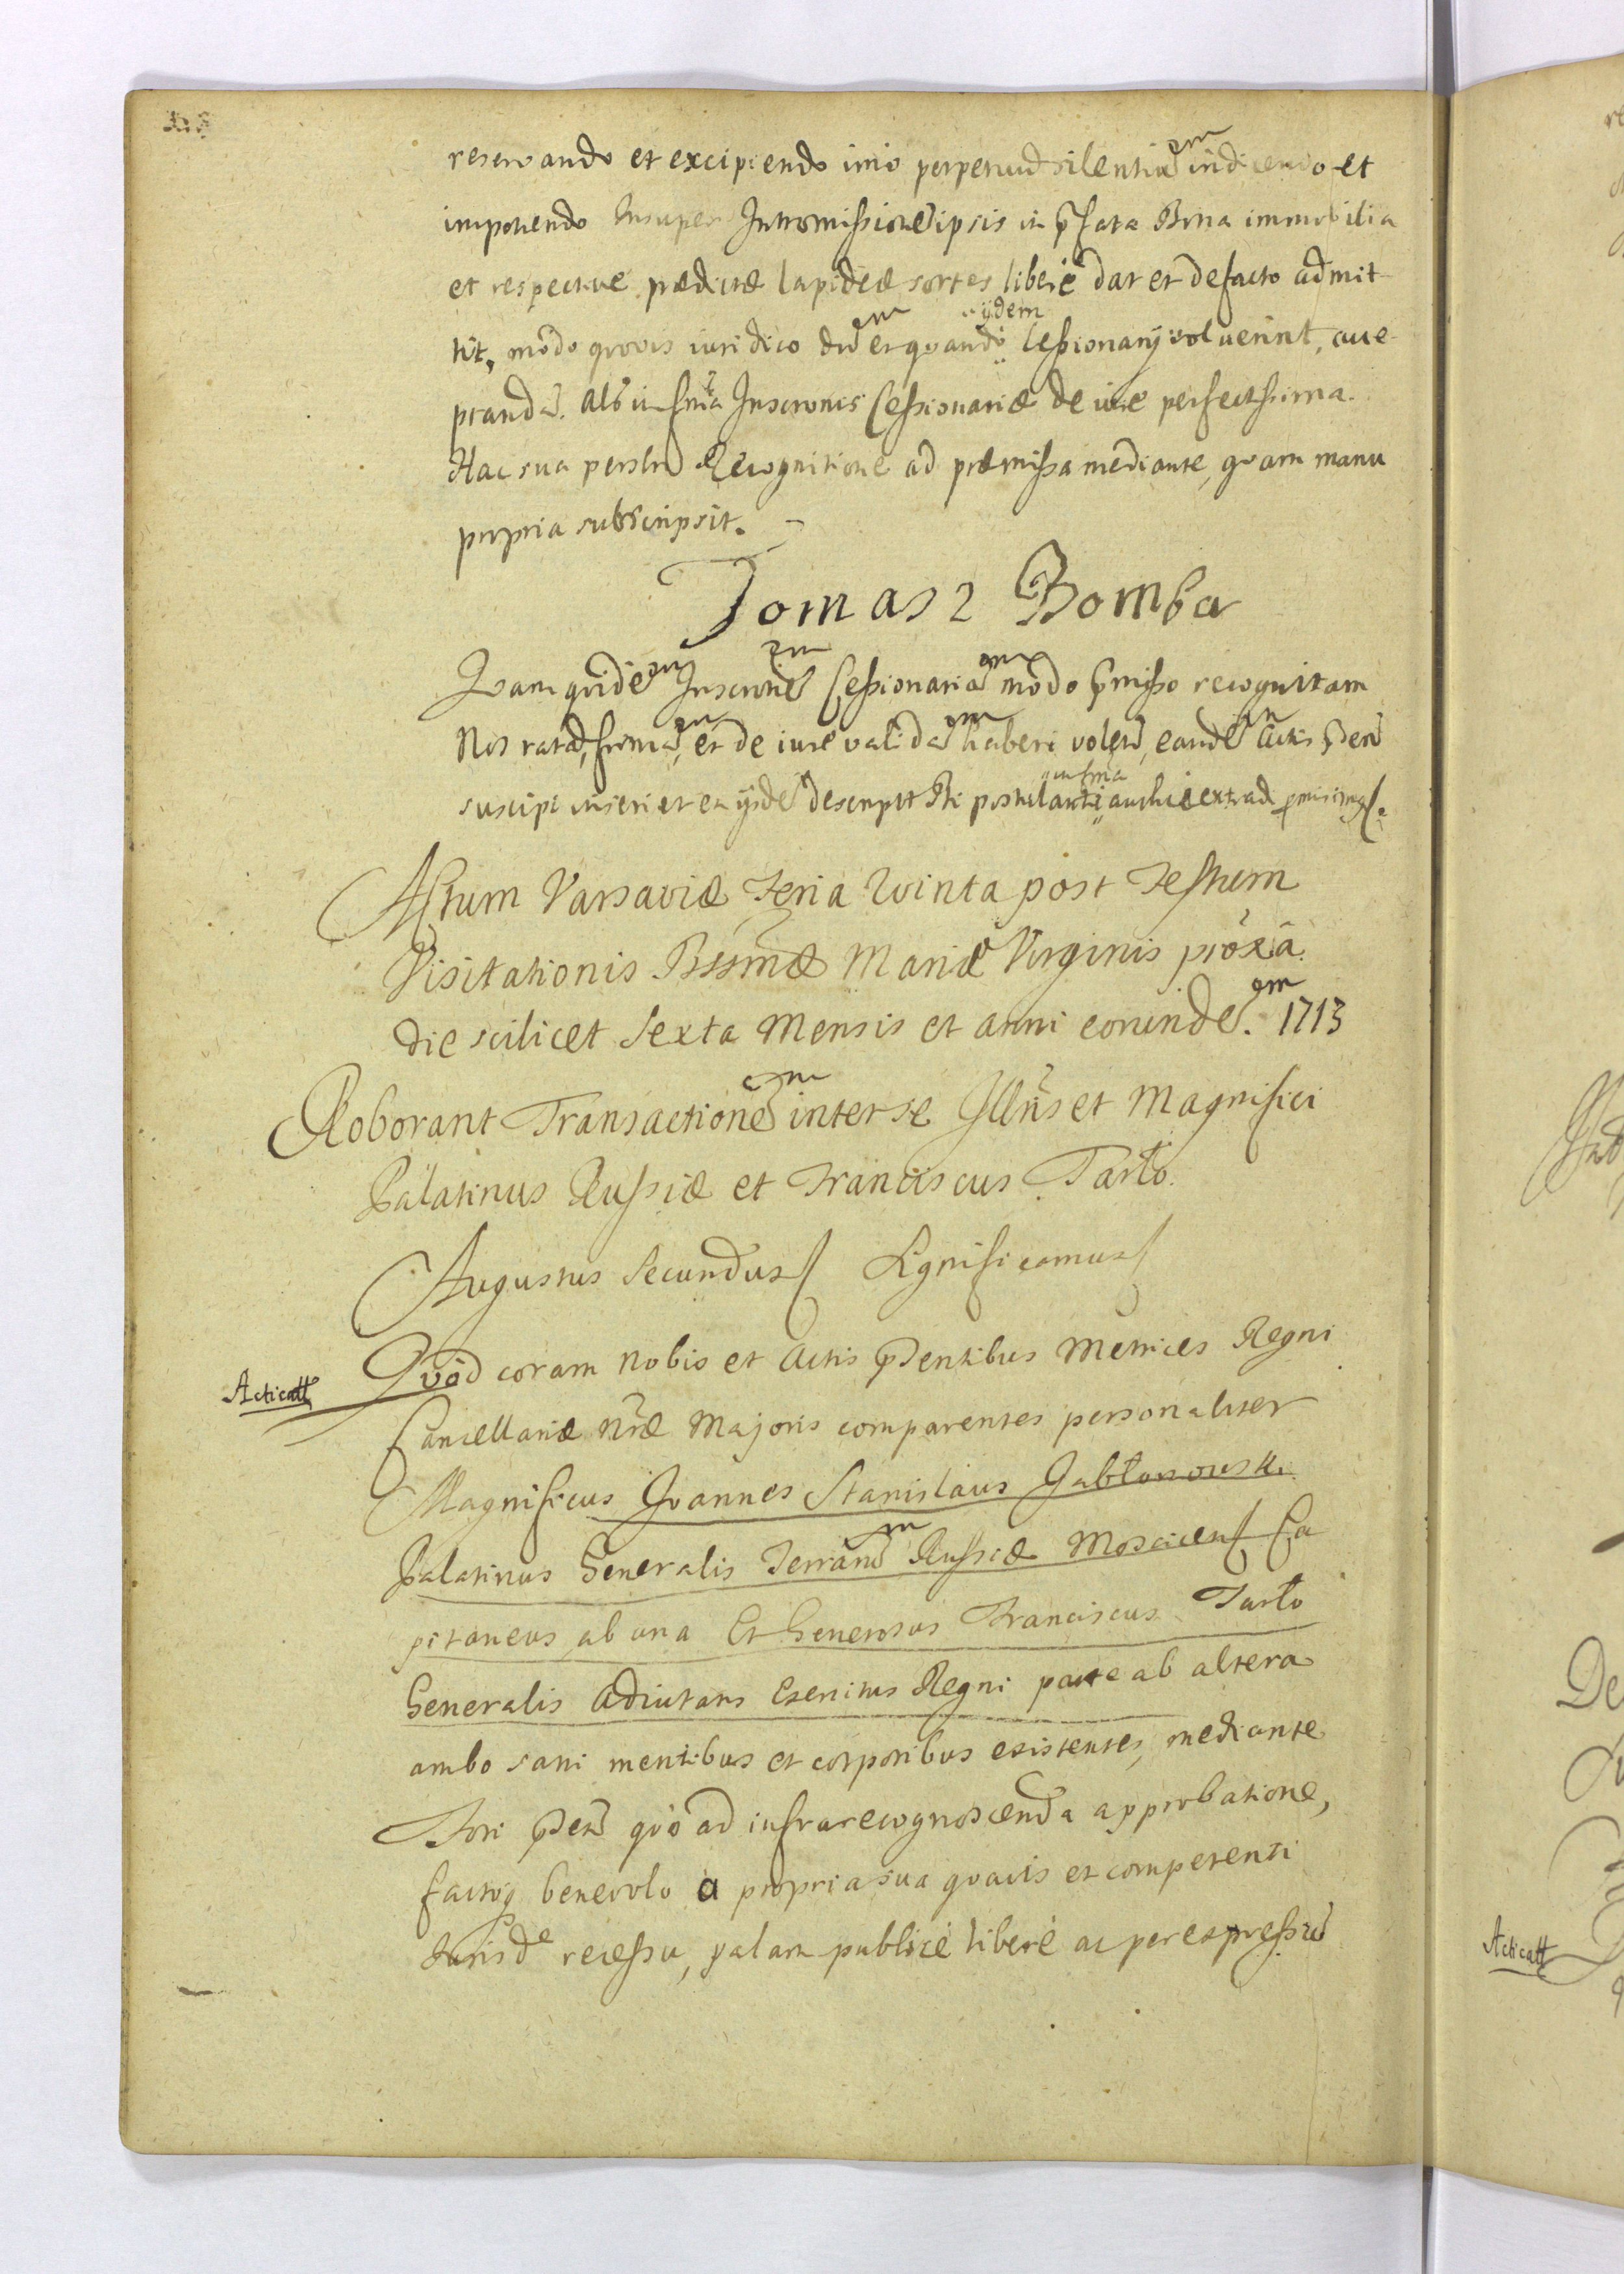 reservando et excipiendo imo perpetuū silentiū indicendo et
imponendo Insuper Intromissionē ipsis in p̄fata Bona immobilia
et respective prædictæ lapideæ sortes liberè dat et defacto admit
tit, modo quovis iuridico dū et quando ijdem Cessionarij voluerint, acce
ptandā. Alb Inscr̄onis Cessionariæ de iure perfectissima.
Hac sua personli Recognitione ad præmissa mediante, quam manu
propria subscripsit.
Tomasz Bomba
Quam quidē Inscr̄onē Cessionariā modo p̄misso recognitam
Nos ratā, firmā, et de iure validā haberi volen̄, eandē Actis p̄sen̄
suscipi inseri et ex ijsdē descript Pti postulanti extrad
Actum Varsaviæ Feria Quinta post Festum
Visitationis Bssmæ Mariæ Virginis próxīa
die scilicet Sexta Mensis et anni eorundē. 1713
Roborant Transactionē inter se Illrīs et Magnifici
Palatinus Russiæ et Franciscus Tarło.
Augustus Secundus Significamus
Quod coram nobis et Actis p̄sentibus Metrices Regni
Acticatt
Cancellariæ Nr̄æ Majoris comparentes personaliter
Magnificus Joannes Stanislaus Jabłonowski
Palatinus Generalis Terrarū Russiæ Moscicen Ca
pitaneus ab una Et Generosus Franciscus Tarło
Generalis Adiutans Exercitus Regni parte ab altera
ambo sani mentibus et corporibus existentes, mediante
Fori p̄sen̄ quò ad infrarecognoscenda approbatione,
factoq benevolo a propria sua quavis et competenti
Jurisde recessu, palam publicè liberè ac per expressū
Acticatt